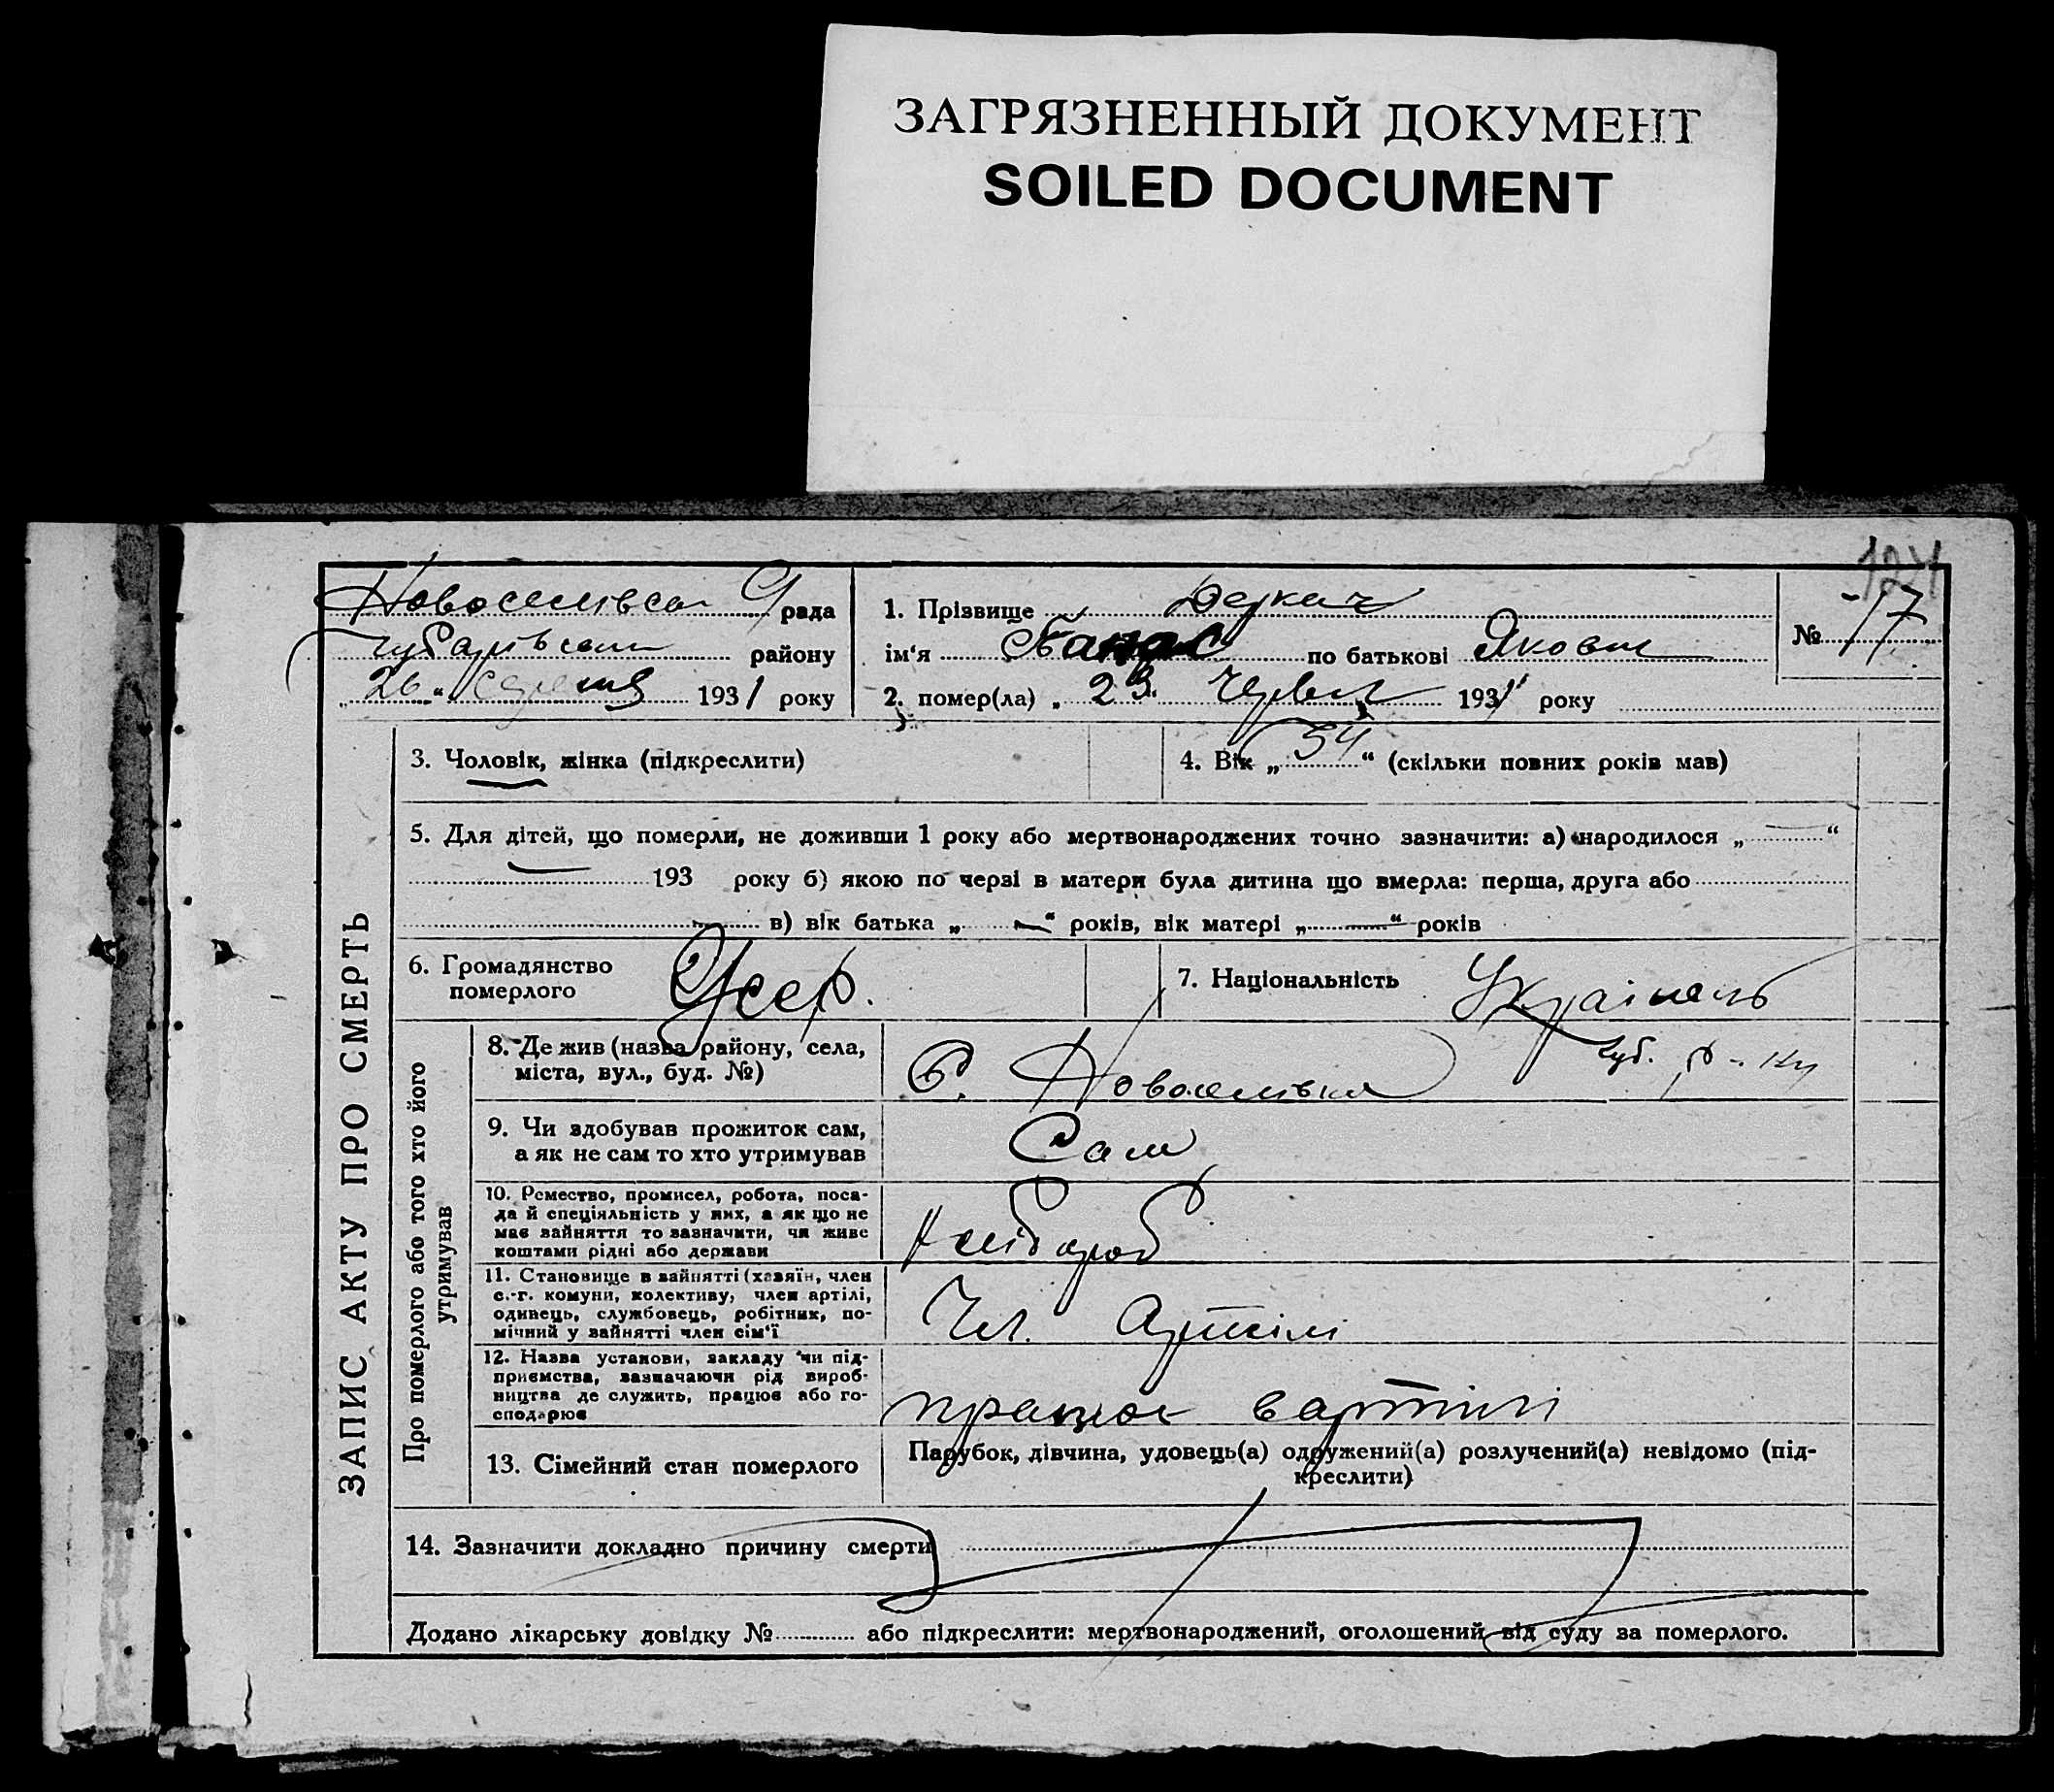 ЗАГРЯЗНЕННЫЙ ДОКУМЕНТ
SOILED DOCUMENT
124
Новоселівська рада
Чубарівськ району
„26“ серпня 1931 року
1. Прізвище Деркач
ім'я Панас по батькові Якович
2. помер(ла) „23 Червня 1931 року
№ 17
ЗАПИС АКТУ ПРО СМЕРТЬ
3. Чоловік, жінка (підкреслити)
4. Вік „54“ (скільки повних років мав)
5. Для дітей, що померли, не доживши 1 року або мертвонароджених точно зазначити: а) народилося „—“
— 193 року б) якою по черзі в матери була дитина що вмерла: перша, друга або
в) вік батька „—“ років, вік матері „—“ років
6. Громадянство
померлого
Усср.
7. Національність Українець
Про померлого або того хто його
утримував
8. Де жив (назва району, села,
міста, вул., буд. №)
С. Новоселівка Чуб. р-ну
9. Чи здобував прожиток сам,
а як не сам то хто утримував
Сам
10. Ремество, промисел, робота, поса-
да й спеціяльність у них, а як що не
має зайняття то зазначити, чи живе
коштами рідні або держави
Хлібороб
11. Становище в зайнятті (хазяїн, член
с.-г. комуни, колективу, член артілі,
одинець, службовець, робітник, по-
мічний у зайнятті член сім'ї
Чл. Артілі
12. Назва установи, закладу чи під-
приємства, зазначаючи рід вироб-
ництва де служить, працює або го-
сподарює
працює вартілі
13. Сімейний стан померлого
Парубок, дівчина, удовець(а) одружений(а) розлучений(а) невідомо (під-
креслити)
14. Зазначити докладно причину смерти
Додано лікарську довідку № або підкреслити: мертвонароджений, оголошений від суду за померлого.